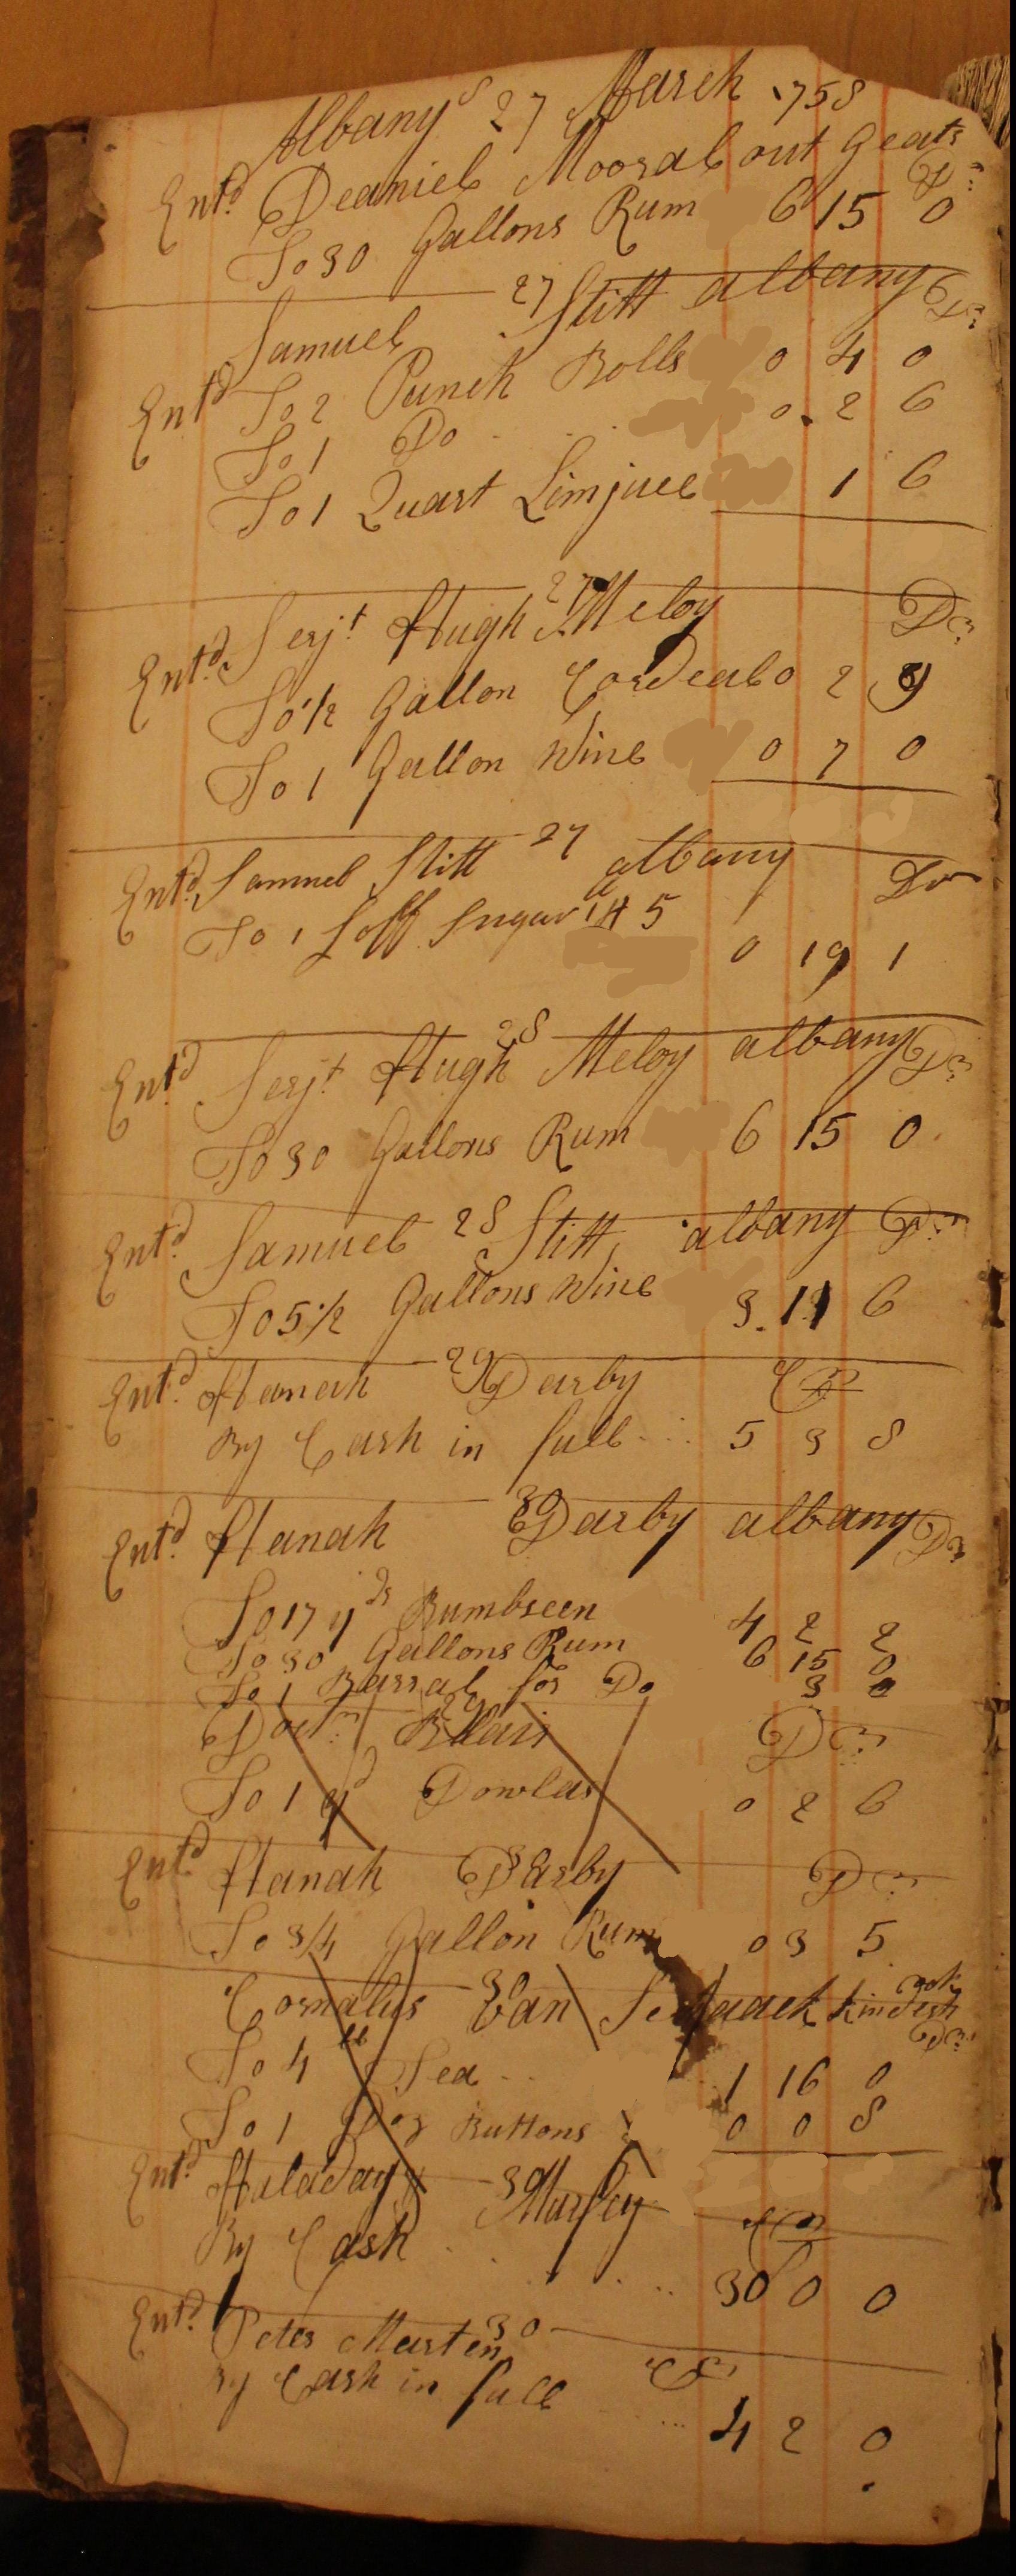 Albany 27 March 1758
Entd Deaniel Moor about Geats Dr
To 30 Gallons Rum 6 15 0
27
Samuel Stitt albany Dr
Entd To 2 Punch Bolls 0 4 0
To 1 Do 0 2 6
To 1 Quart Limjuce 1 6
27
Entd Serjt Hugh Meloy Dr
To 1/2 Gallon Cordeal 0 2 9
To 1 Gallon Wine 0 7 0
27
Entd Samuel Stitt albany Dr
To 1 Loff Sugar 0 19 1
28
Entd Serjt Hugh Meloy albany Dr
To 30 Gallons Rum 6 15 0
28
Entd Samuel Stitt albany Dr
To 5 1/2 Gallons Wine 3 11 6
29
Entd Hanah Darby Cr
By Cash in full 5 3 8
30
Entd Hanah Darby albany Dr
To 17 yds Bumbseen 4 2 2
To 30 Gallons Rum 6 15 0
To 1 Barral for Do 3 0
Doctr Blair Dr
To 1 yd Dowlas 0 2 6
Entd Hanah Darby Dr
To 3/4 Gallon Rum 0 3 5
30
Cornalus Van Dr
To 4 ll Tea 1 16 0
To 1 Doz Buttons 0 0 8
30
Entd Haladay Dr
By Cash 30 0 0
30
Entd Peter Marten Cr
By Cash in full 4 2 0